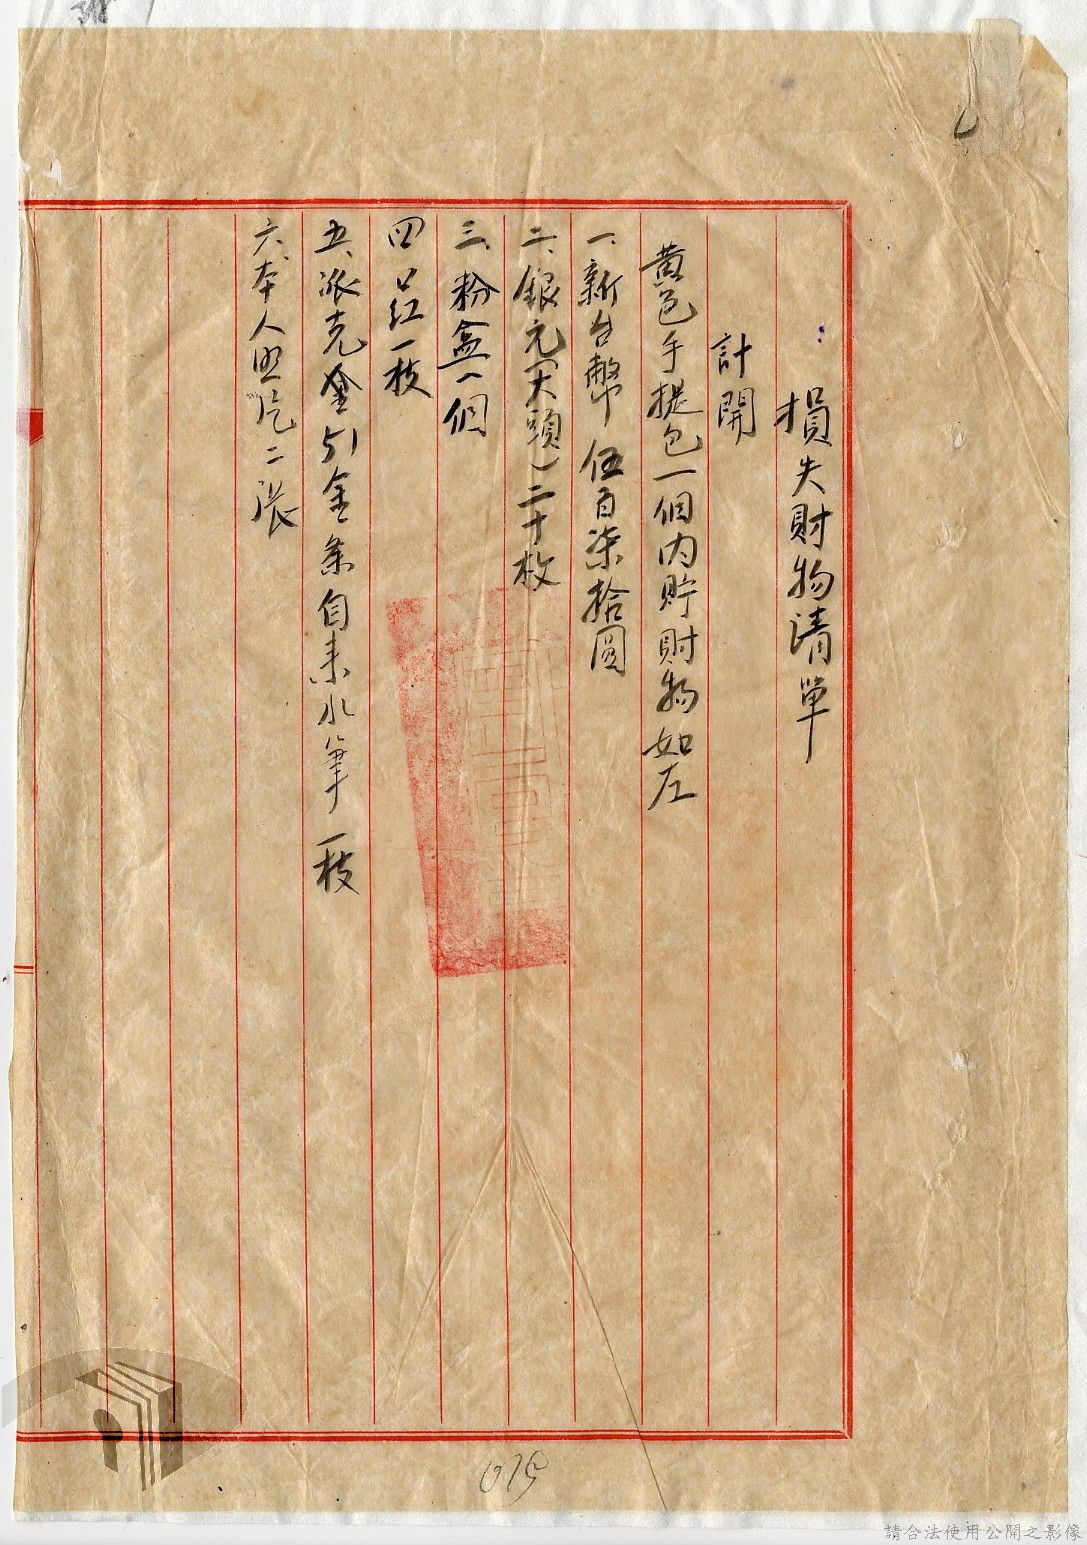 損失財物清單
計開
黃色手提包一個內貯財物如左
一、新台幣伍百柒拾圓
二、銀元(大頭)二十枚
三、粉盒一個
四、口紅一枝
五、派克金引金套自來水筆一枝
六、本人照片二張
請合法使用公開之影像